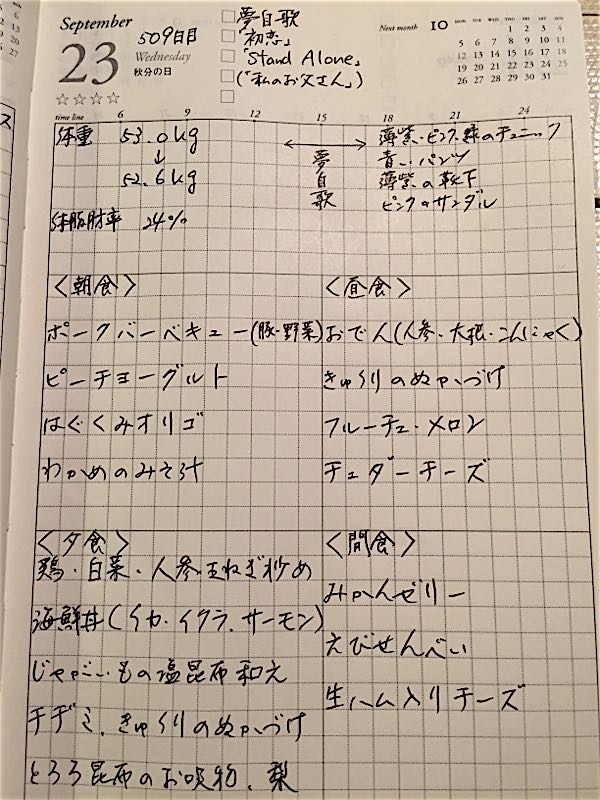 September
23
509日目
Wednesday
秋分の日
☆☆☆☆
夢自歌
「初恋」
「Stand Alone」
(「私のお父さん」)
Next month 10
MON TUE WED THU FRI SAT SUN
1 2 3 4
5 6 7 8 9 10 11
12 13 14 15 16 17 18
19 20 21 22 23 24 25
26 27 28 29 30 31
time line 6 9 12 15 18 21 24
体重 53.0kg
↓
52.6kg
体脂肪率 24%
夢自歌
薄紫・ピンク・緑のチュニック
青いパンツ
薄紫の靴下
ピンクのサンダル
<朝食>
ポークバーベキュー(豚・野菜)
ピーチヨーグルト
はぐくみオリゴ
わかめのみそ汁
<昼食>
おでん(人参・大根・こんにゃく)
きゅうりのぬかづけ
フルーチェ・メロン
チェダーチーズ
<夕食>
鶏・白菜・人参・玉ねぎ炒め
海鮮丼(イカ・イクラ・サーモン)
じゃがいもの塩昆布和え
チヂミ、きゅうりのぬかづけ
とろろ昆布のお吸物、梨
<間食>
みかんゼリー
えびせんべい
生ハム入りチーズ